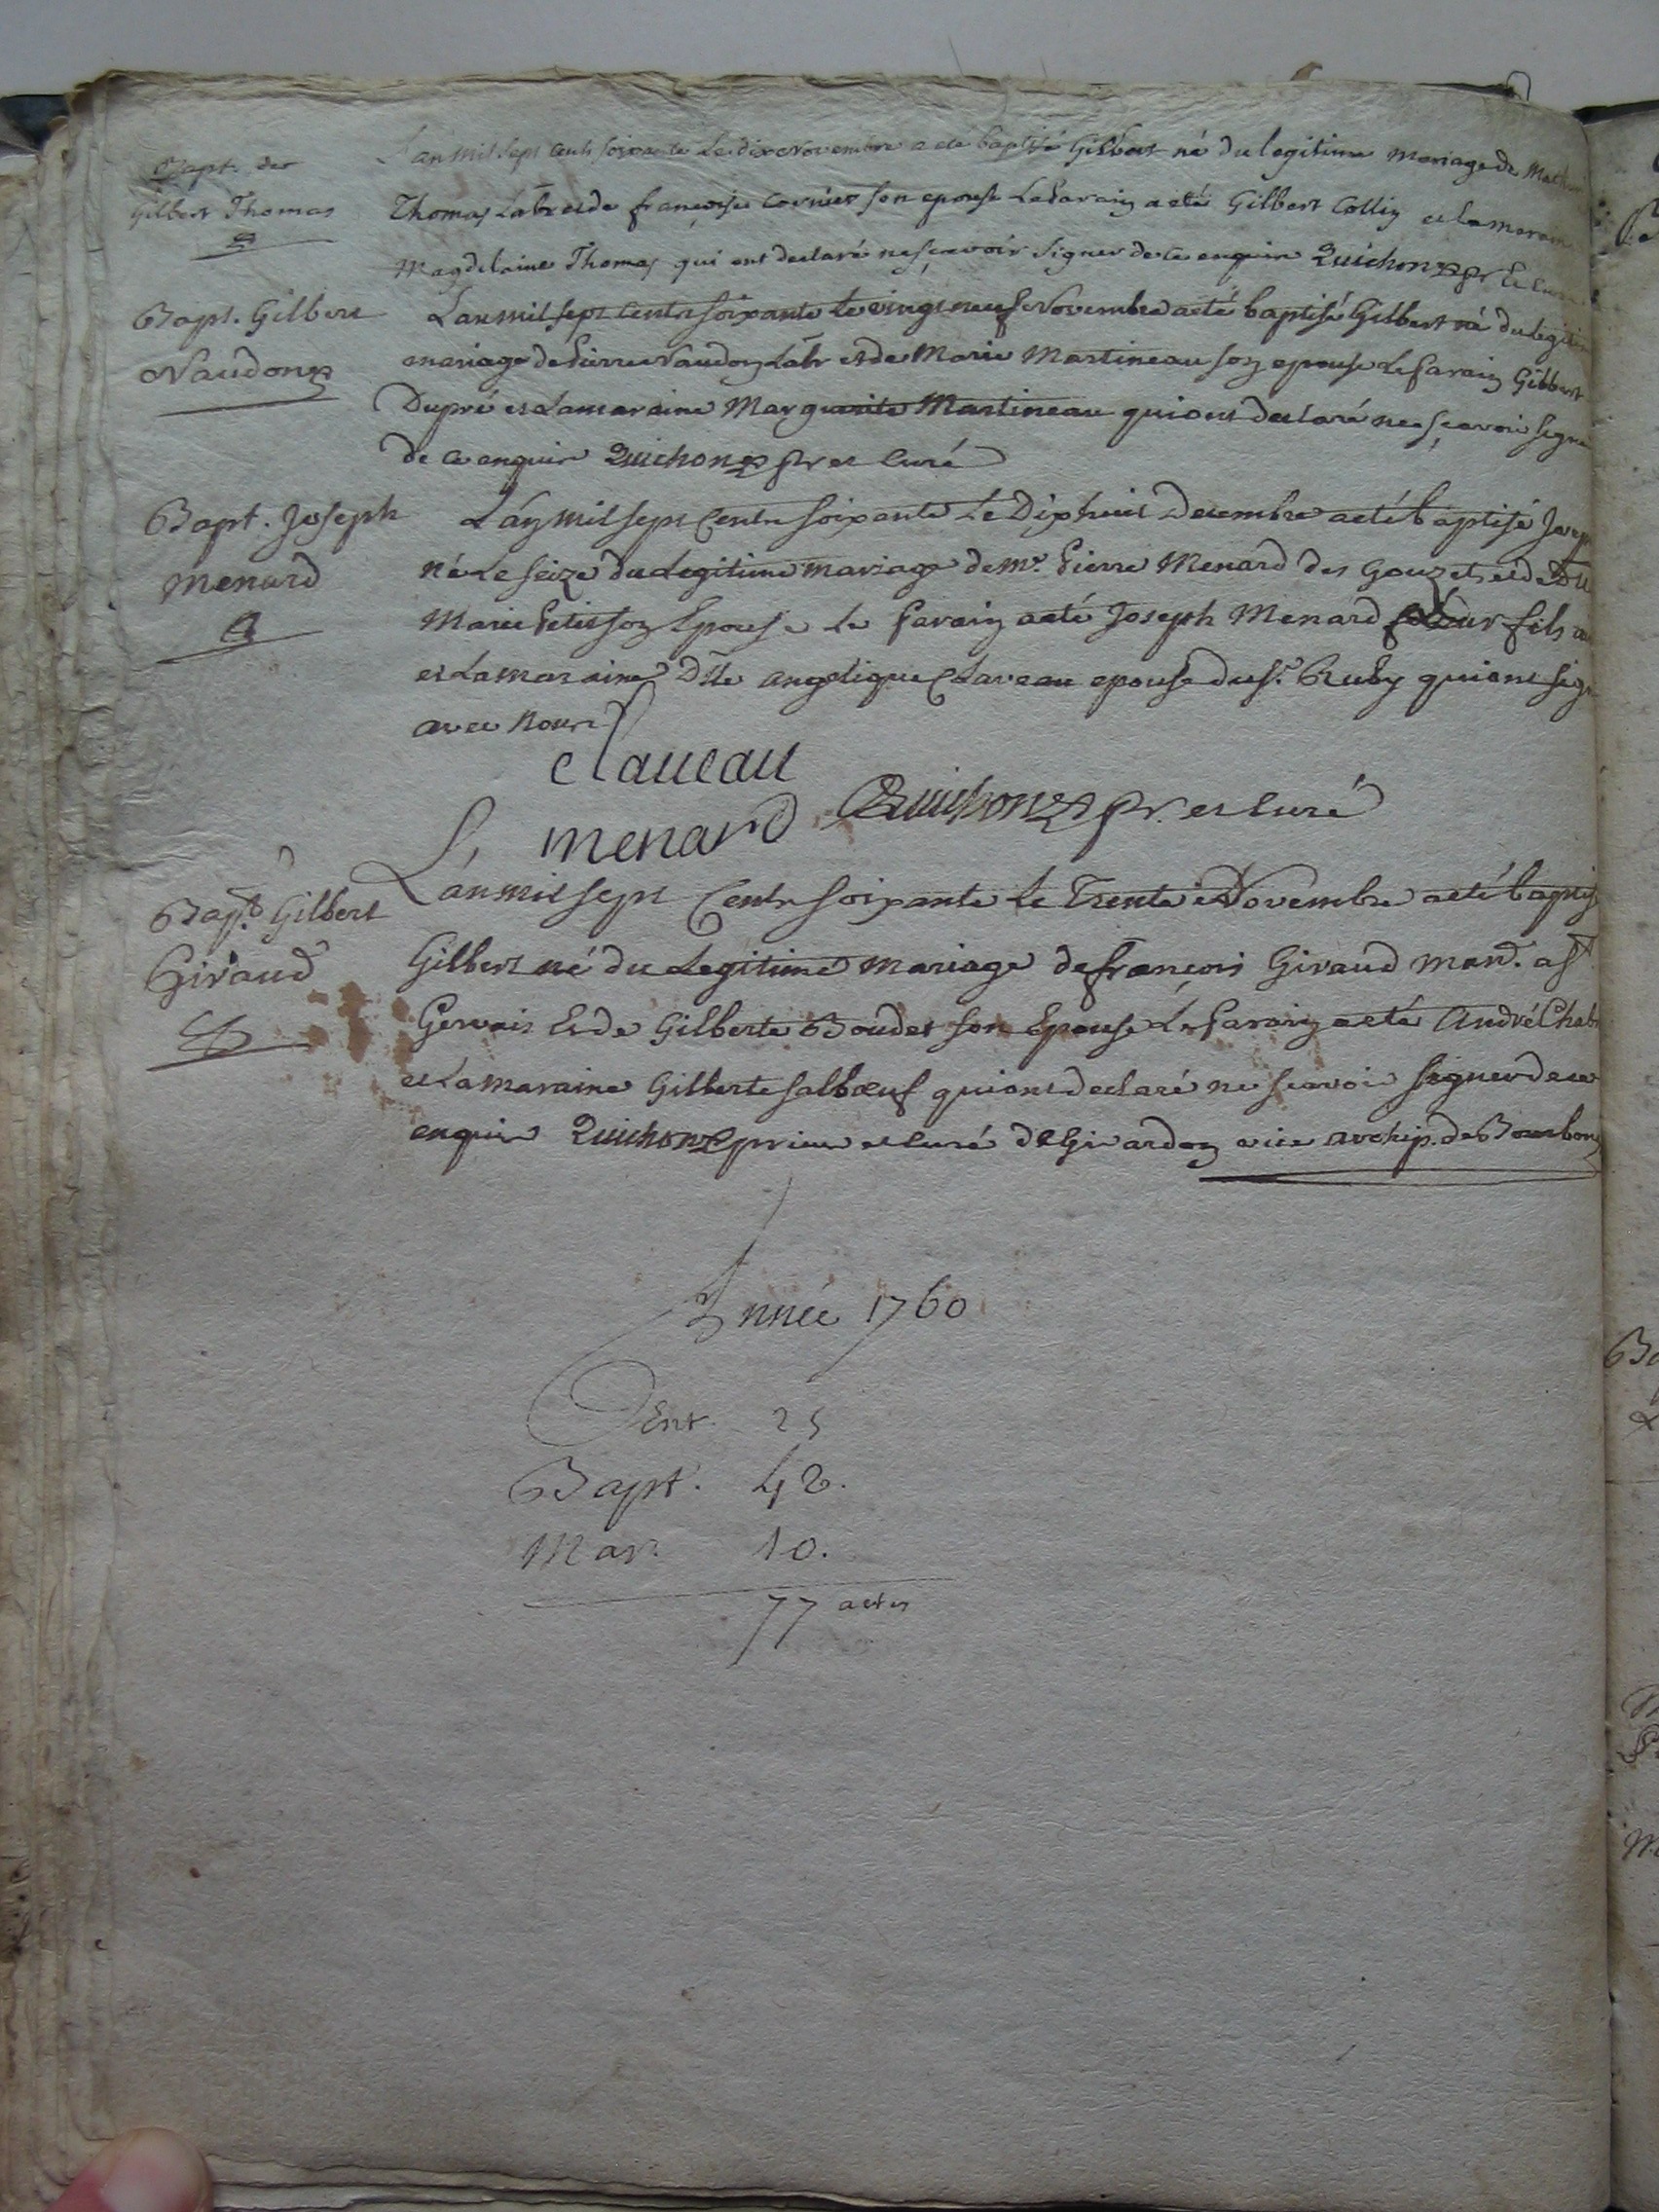 Bapt. de
Gilbert Thomas
L'an mil sept cents soixante Le dix Novembre a eté baptisé Gilbert né du legitime mariage de
Thomas Labr et de françoise Cornier son epouse Le Parain a eté Gilbert Collin et la marain
Magdelaine Thomas qui ont declaré ne sçavoir Signer de ce enquis Quichon pr et curé
Bapt. Gilbert
Naudon
L'an mil sept Cents soixante Le vingt neuf Novembre a eté baptisé Gilbert né du legitim
mariage de Pierre Naudon Labr et de Marie Martineau son epouse Le Parain Gilbert
Dupré et La maraine Marguerite Martineau qui ont declaré ne sçavoir signe
de ce enquis Quichon pr et Curé
Bapt. Joseph
Menard
L'an mil sept Cents soixante Le Dix huit Decembre a eté baptisé Josep
né Le seize du Legitime mariage de mr. Pierre Menard des Gouzets et de
Marie Petisson Epouse Le Parain a eté Joseph Menard Leur fils
et La maraine Dlle angelique Claveau epouse du sr. Ruby qui ont sig
avec nous
claueau
menard
Quichon pr. et Curé
Bapt. Gilbert
Giraud
L'an mil sept Cents soixante Le Trente Novembre a eté baptis
Gilbert né du Legitime mariage de françois Giraud man. a St
Gervais Et de Gilberte Boudet son Epouse Le Parain a eté André
et La maraine Gilberte salbœuf qui ont declaré ne scavoir signer de ce
enquis Quichon prieur et curé de Givardon vice archip. de Bourbon
Année 1760
Ent. 25
Bapt. 42.
Mar. 10.
77 actes